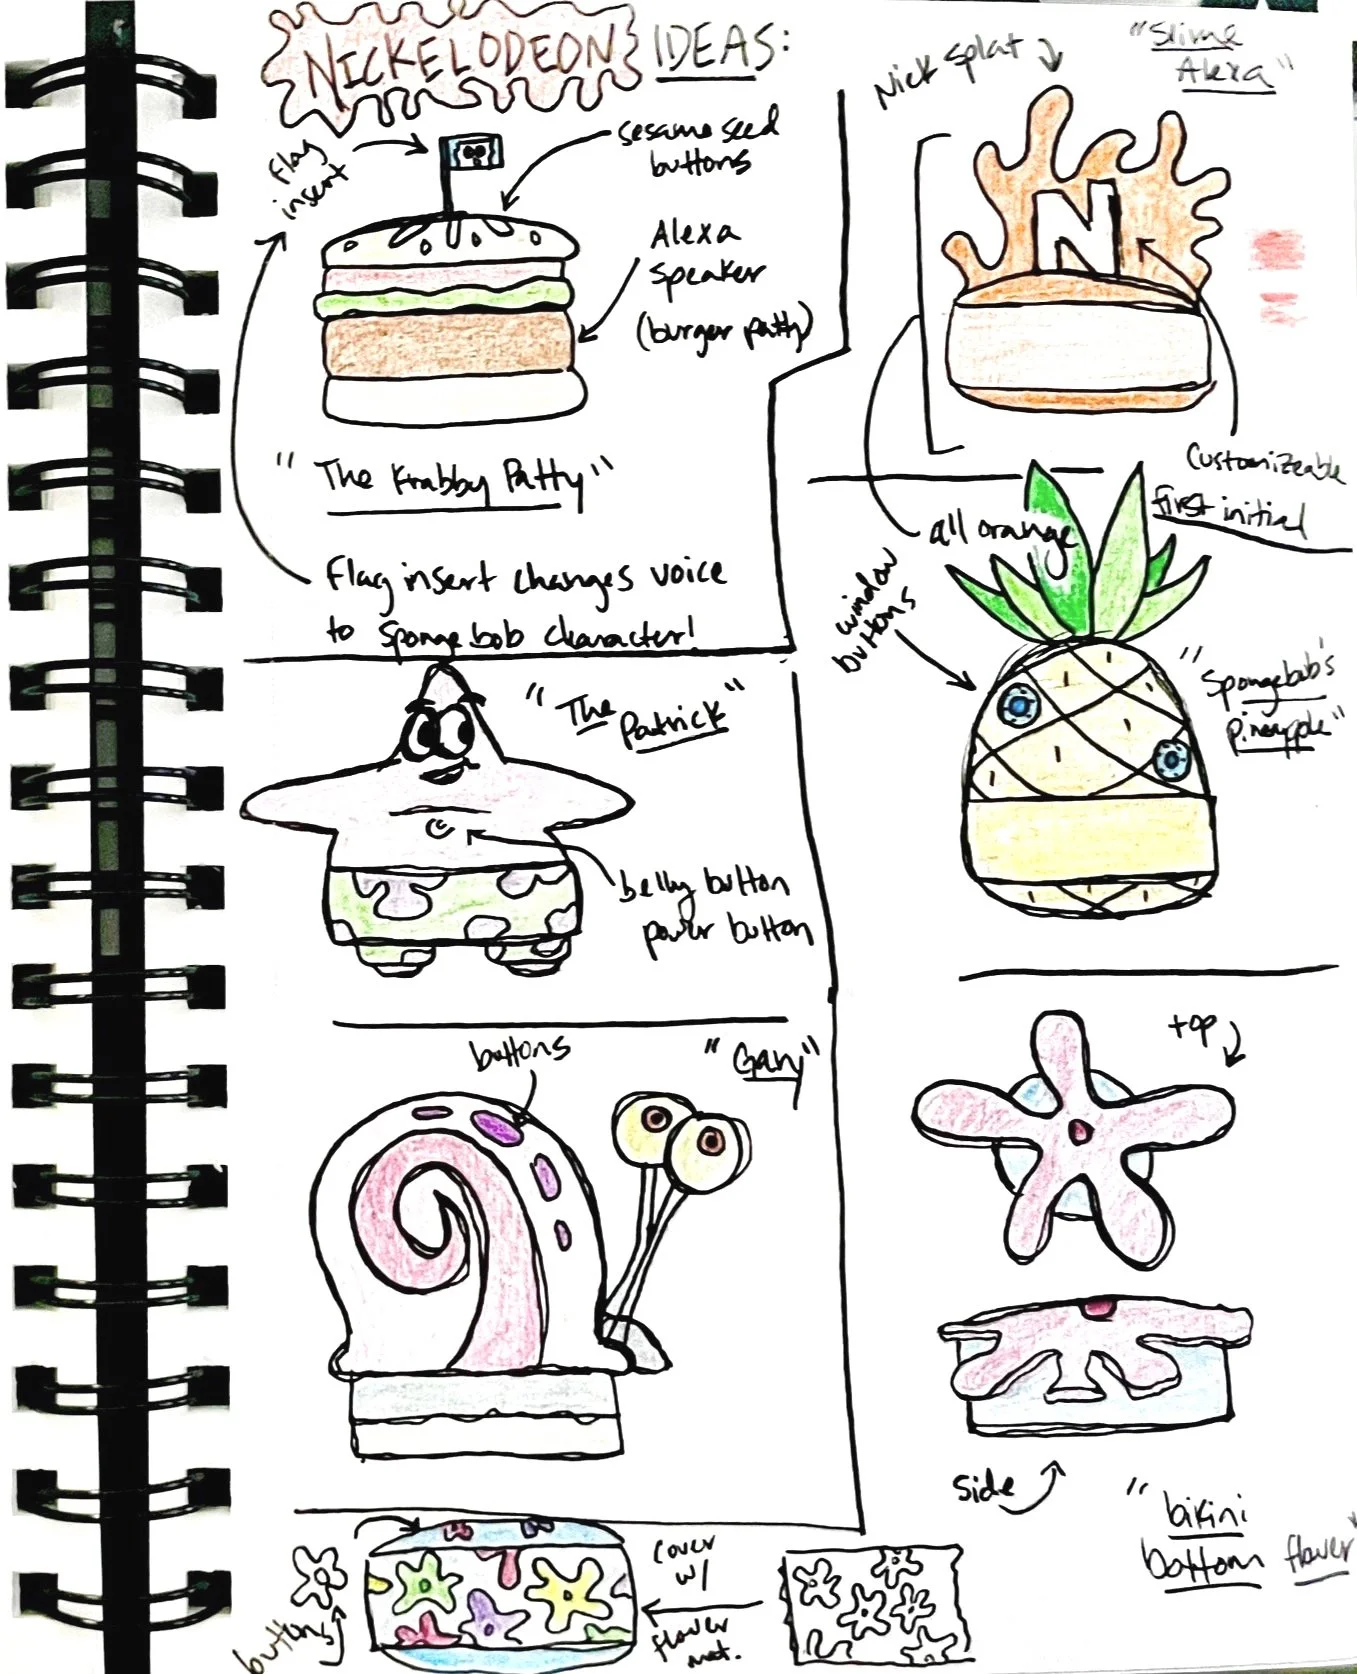 NICKELODEON IDEAS:
Flag
insert
sesame seed
buttons
Alexa
speaker
(burger patty)
"The Krabby Patty"
Flag insert changes voice
to spongebob character!
Nick splat
"Slime
Alexa"
N
Customizeable
first initial
all orange
window
buttons
"Spongebob's
pineapple"
"The
Patrick"
belly button
power button
"Gary"
buttons
top
side
"bikini
bottom flower"
buttons
cover
w/
flower
mat.